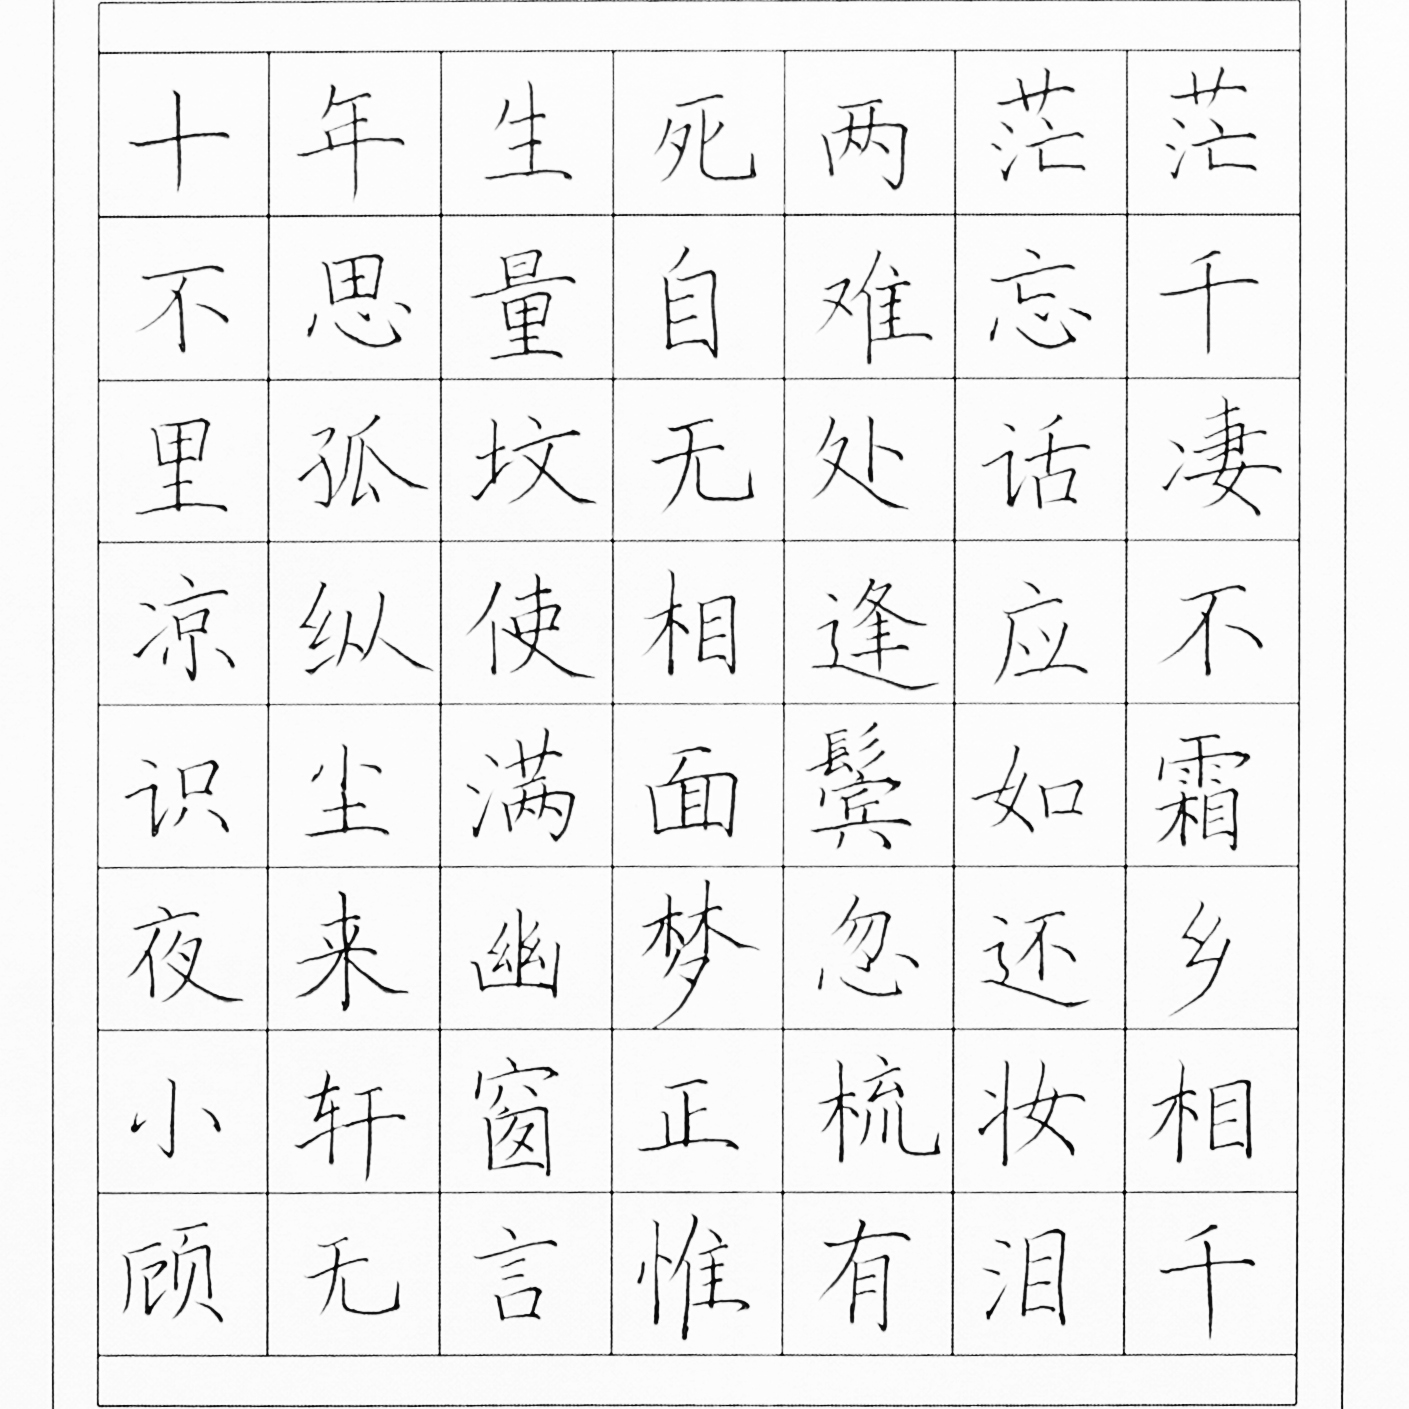 十年生死两茫茫
不思量自难忘千
里孤坟无处话凄
凉纵使相逢应不
识尘满面鬓如霜
夜来幽梦忽还乡
小轩窗正梳妆相
顾无言惟有泪千